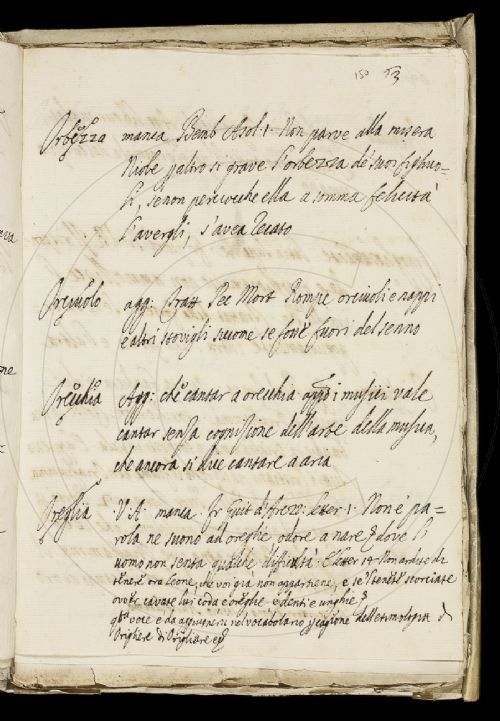 150 53
Orbezza manca Bemb Asol. 1. Non parve alla misera
Niobe p altro si grave l'orbezza de' suoi figliuo-
li, se non percioche ella a somma felicità
l'avergli, s'avea recato
Orciuolo agg: Tratt Pec Mort Rompe orciuoli e nappi
e altri stovigli siccome se fosse fuori del senno
Orecchia Agg: che cantar a orecchia appo i musici vale
cantar senza cognizione dell'arte della musica,
che ancora si dice cantare a aria
Oreglia V. A. manca. Fr Guit d'Arezz: letter 1. Non é pa-
rola ne suono ad oreghe odore a nare dove l'
uomo non senta qualche difficultà. E letter 14 Non ardite di
tenere ora leone, che voi già non appartiene, e se'l tenete scorciate
over cavate lui coda e oreghe e denti e unghie
voce e da aggiugnersi nel vocabolario cagione dell'etimologia di
Origliere di Origliare